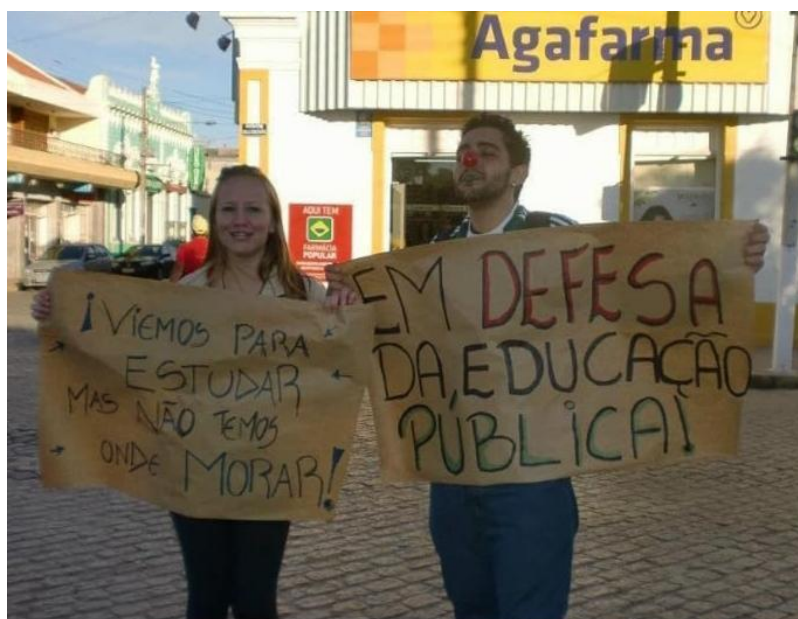 Agafarma
AQUI TEM
FARMÁCIA
POPULAR
¡VIEMOS PARA
ESTUDAR
MAS NÃO TEMOS
ONDE MORAR!
EM DEFESA
DA EDUCAÇÃO
PÚBLICA!